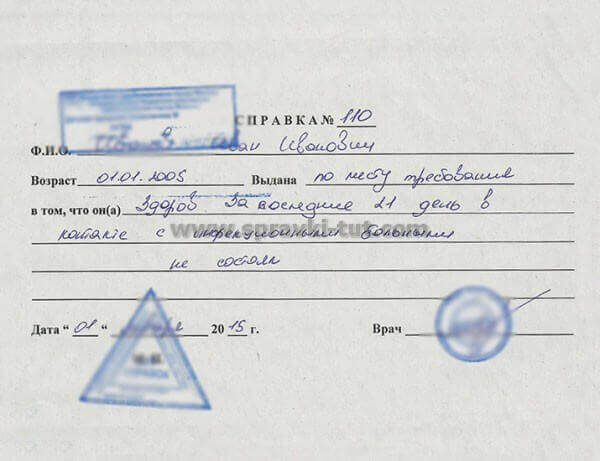 СПРАВКА № 110
Ф.И.О. Иван Иванович
Возраст 01.01.2005 Выдана по месту требования
в том, что он(а) Здоров За последние 21 день в
контакте с инфекционными больными
www.spravki-tut.com
не состоял
Дата “ 01 “ 2015 г. Врач